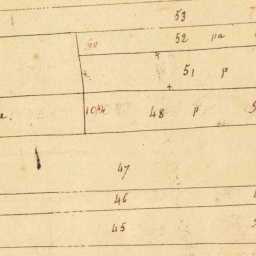 53
52 pa
51 p
48 p
47
46
45